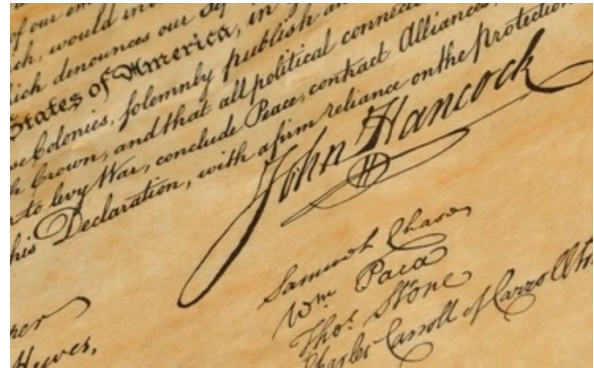 of our
ch, would in
ich denounces our Se
States of America, in
se Colonies, solemnly publish an
h Crown, and that all political connec
r to levy War, conclude Peace, contract Alliances,
his Declaration, with a firm reliance on the Protection
John Hancock
Samuel Chase
Wm Paca
Thos. Stone
Charles Carroll of Carrollton
Hewes,